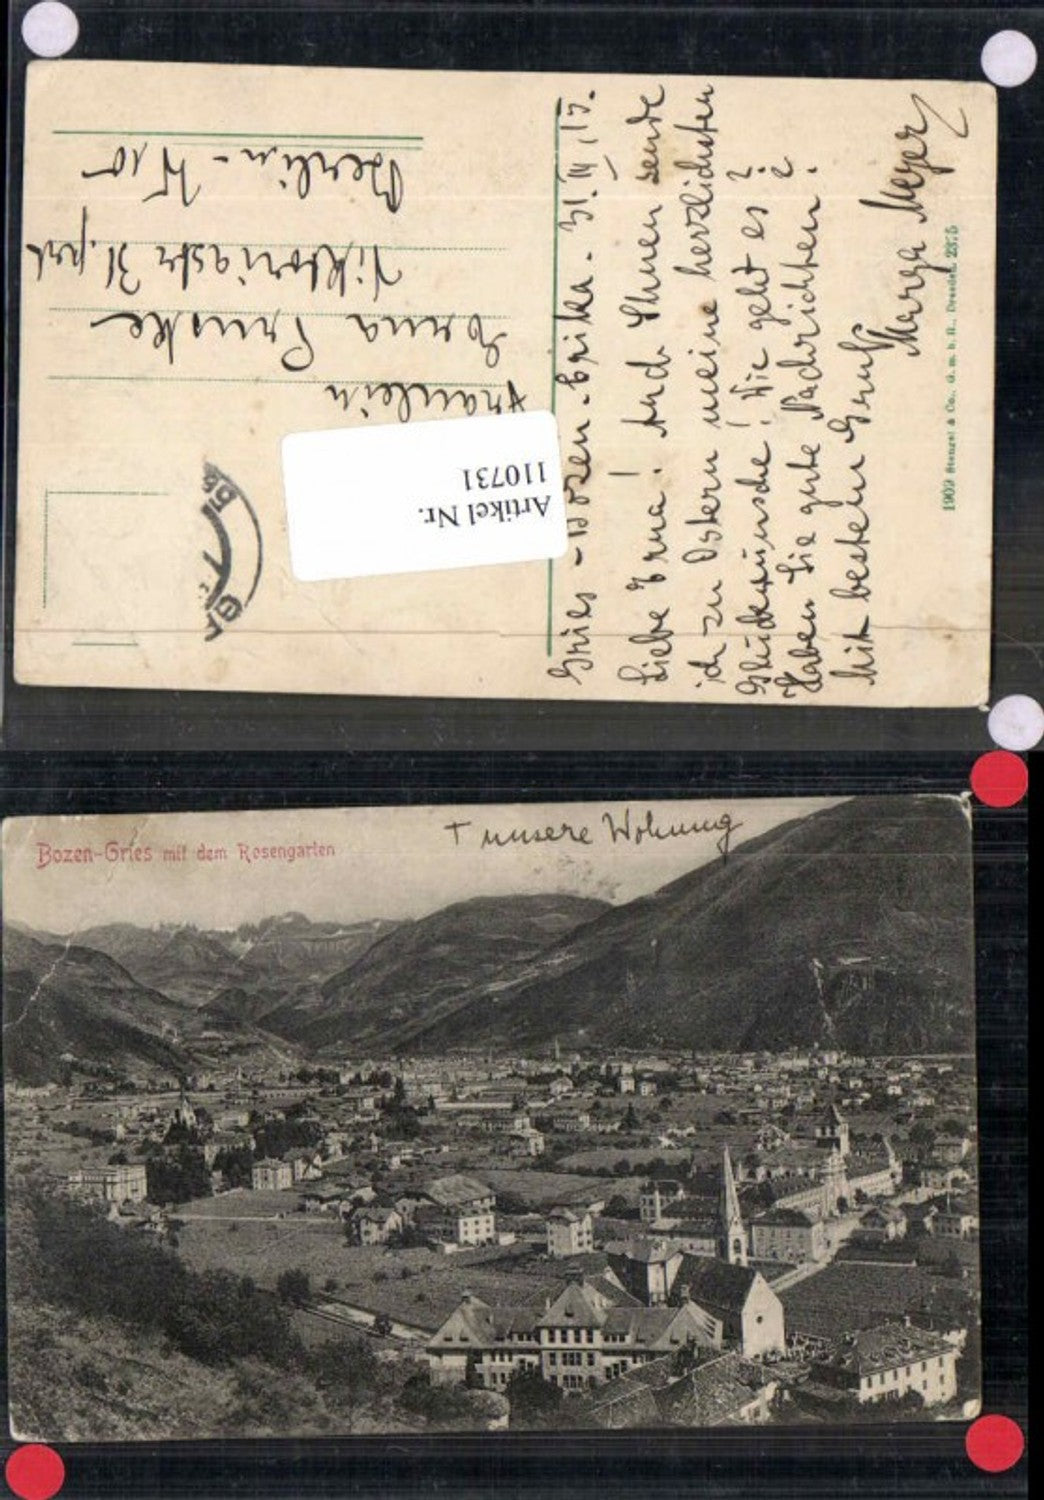 Gries - Bozen - Erika. 31. III. 15.
Liebe Erna! Auch Ihnen sende
ich zu Ostern meine herzlichsten
Glückwünsche! Wie geht es?
Haben Sie gute Nachrichten?
Mit bestem Gruß
Marga Meyer
Fräulein
Erna
Viktoriastr 31. prt
Berlin - W 10
Artikel Nr.
110731
1909 Stengel & Co., G. m. b. H., Dresden.
Bozen-Gries mit dem Rosengarten
+ unsere Wohnung